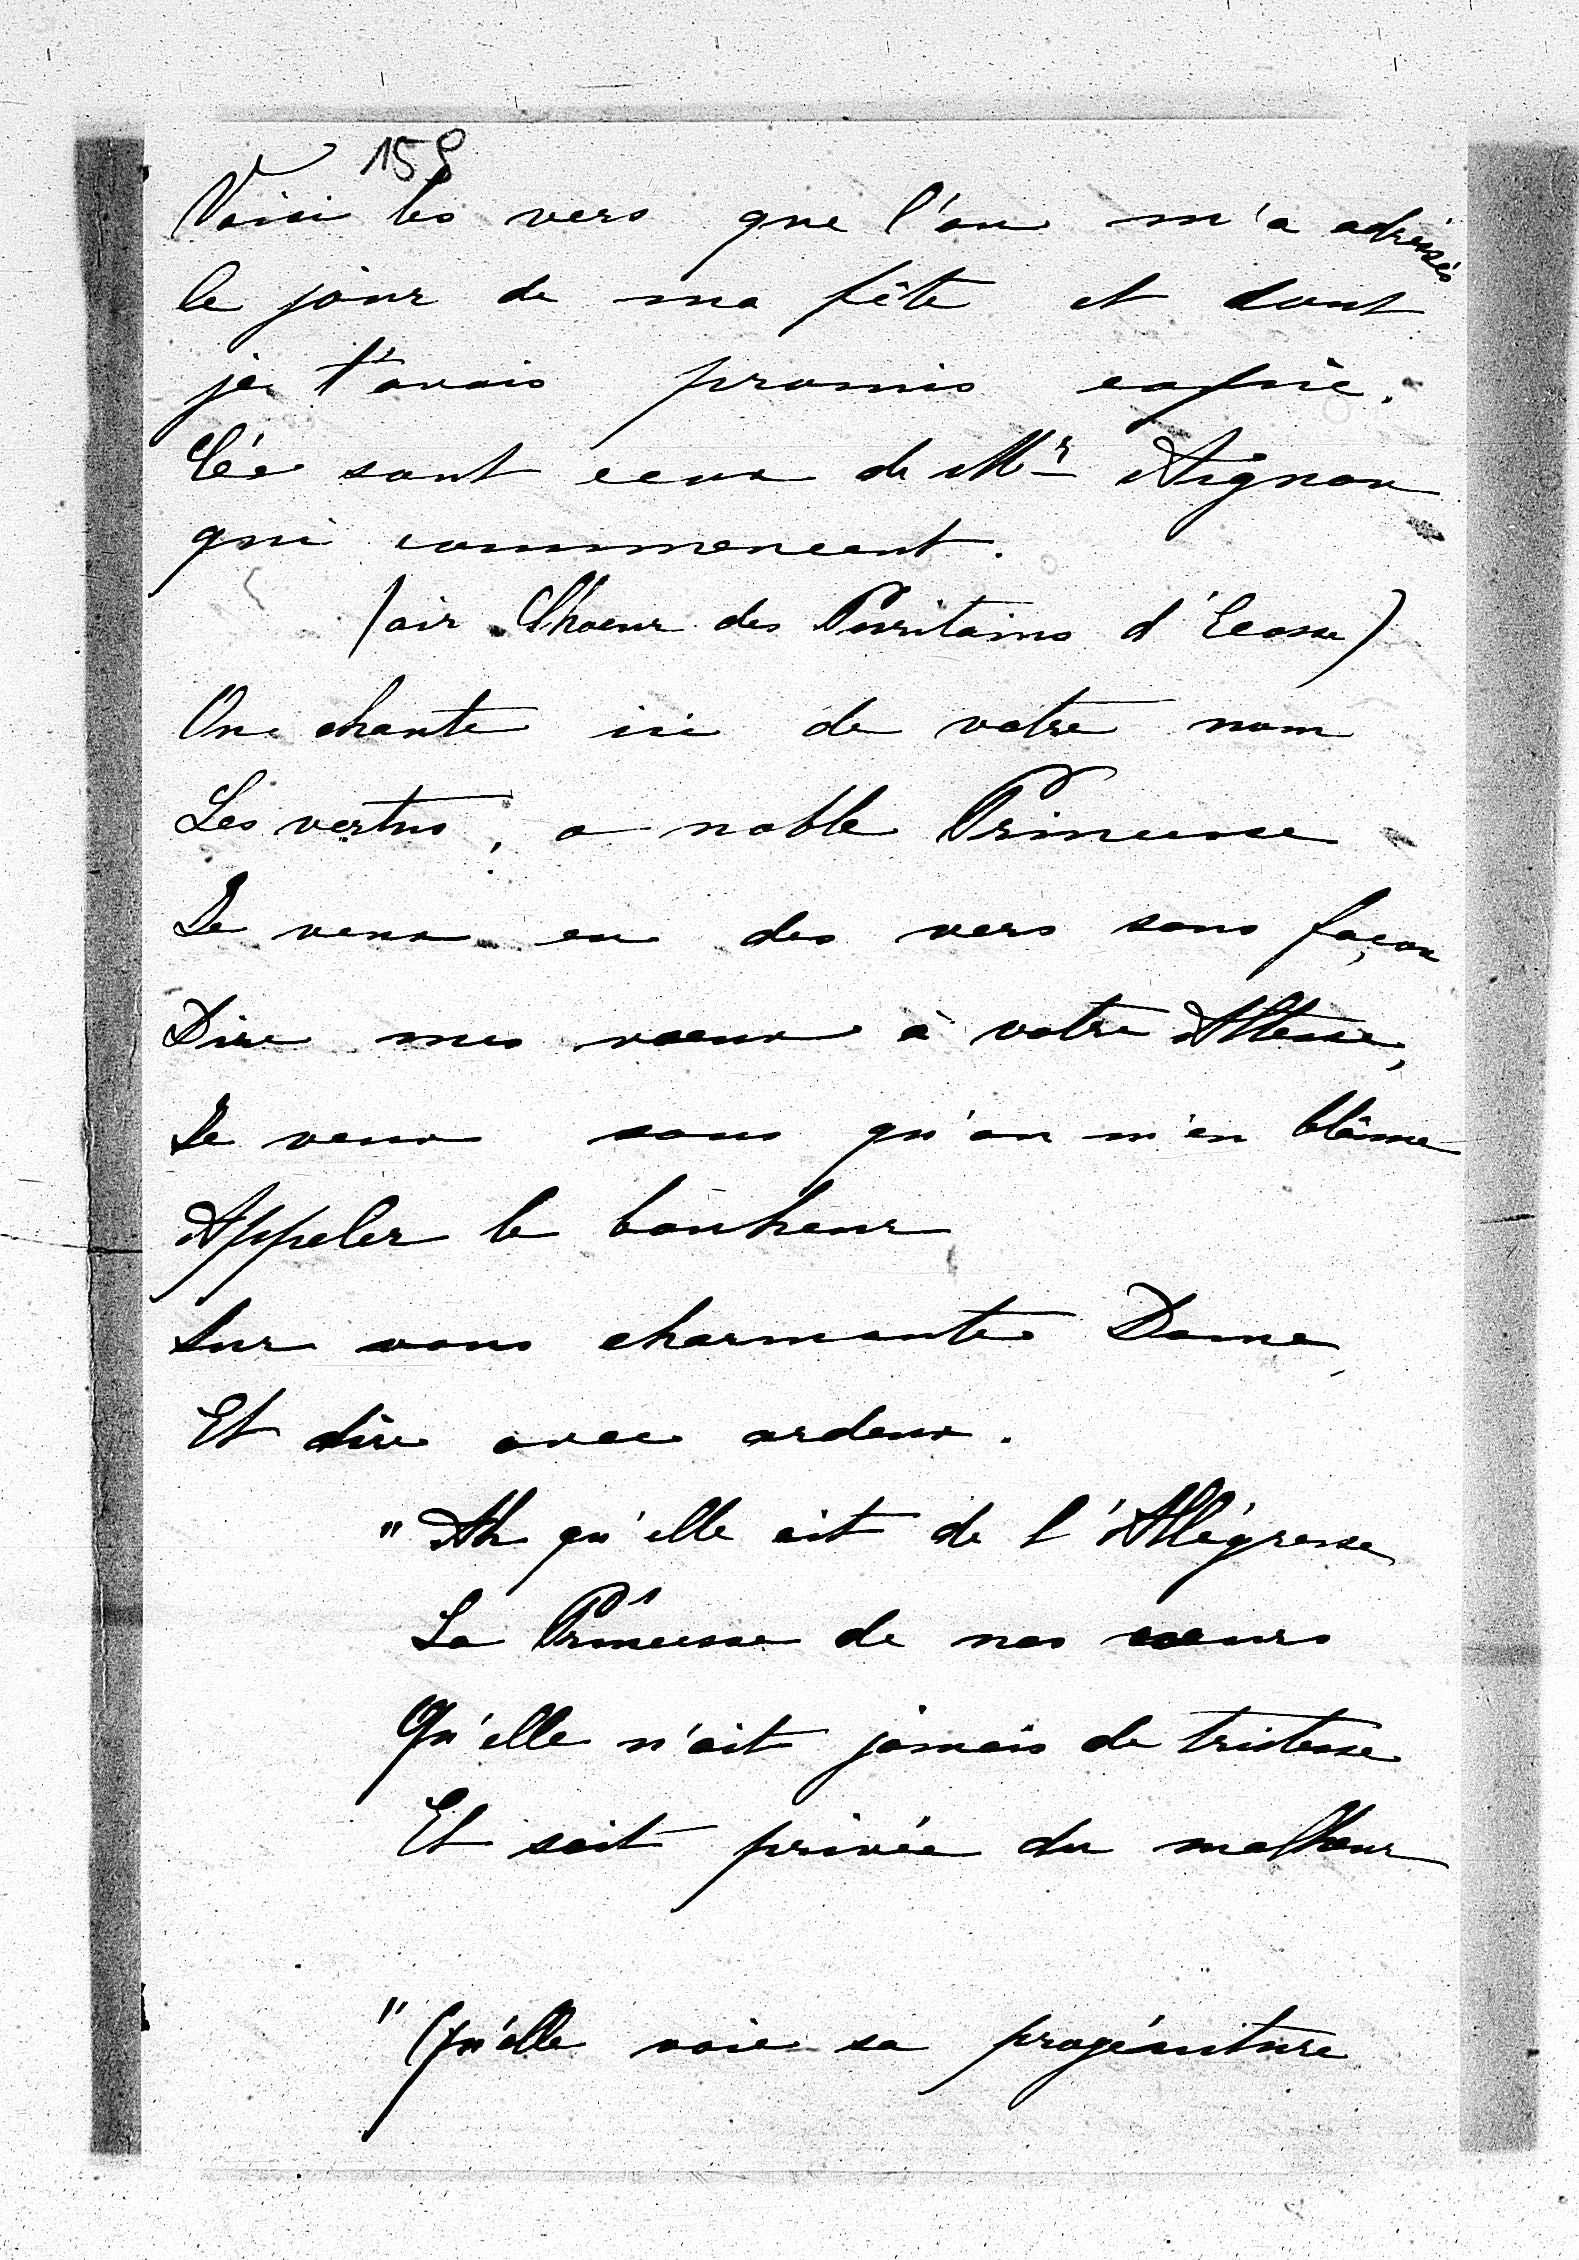 159
Voici les vers que l'on m'a adressés
le jour de ma fête et dont
je t'avais promis copie.
Ce sont ceux de Mr Aignon
qui commencent.
(air Choeur des Puritains d'Ecosse)
On chante ici de votre nom
Les vertus, o noble Princesse
Je veux en des vers sans façon
Dire mes voeux à votre Altesse,
Je veux sans qu'on m'en blâme
Appeler le bonheur
Sur vous charmante Dame,
Et dire avec ardeur.
"Ah qu'elle ait de l'Allégresse
La Princesse de nos coeurs
Qu'elle n'ait jamais de tristesse
Et soit privée du malheur
"Qu'elle voie sa progéniture